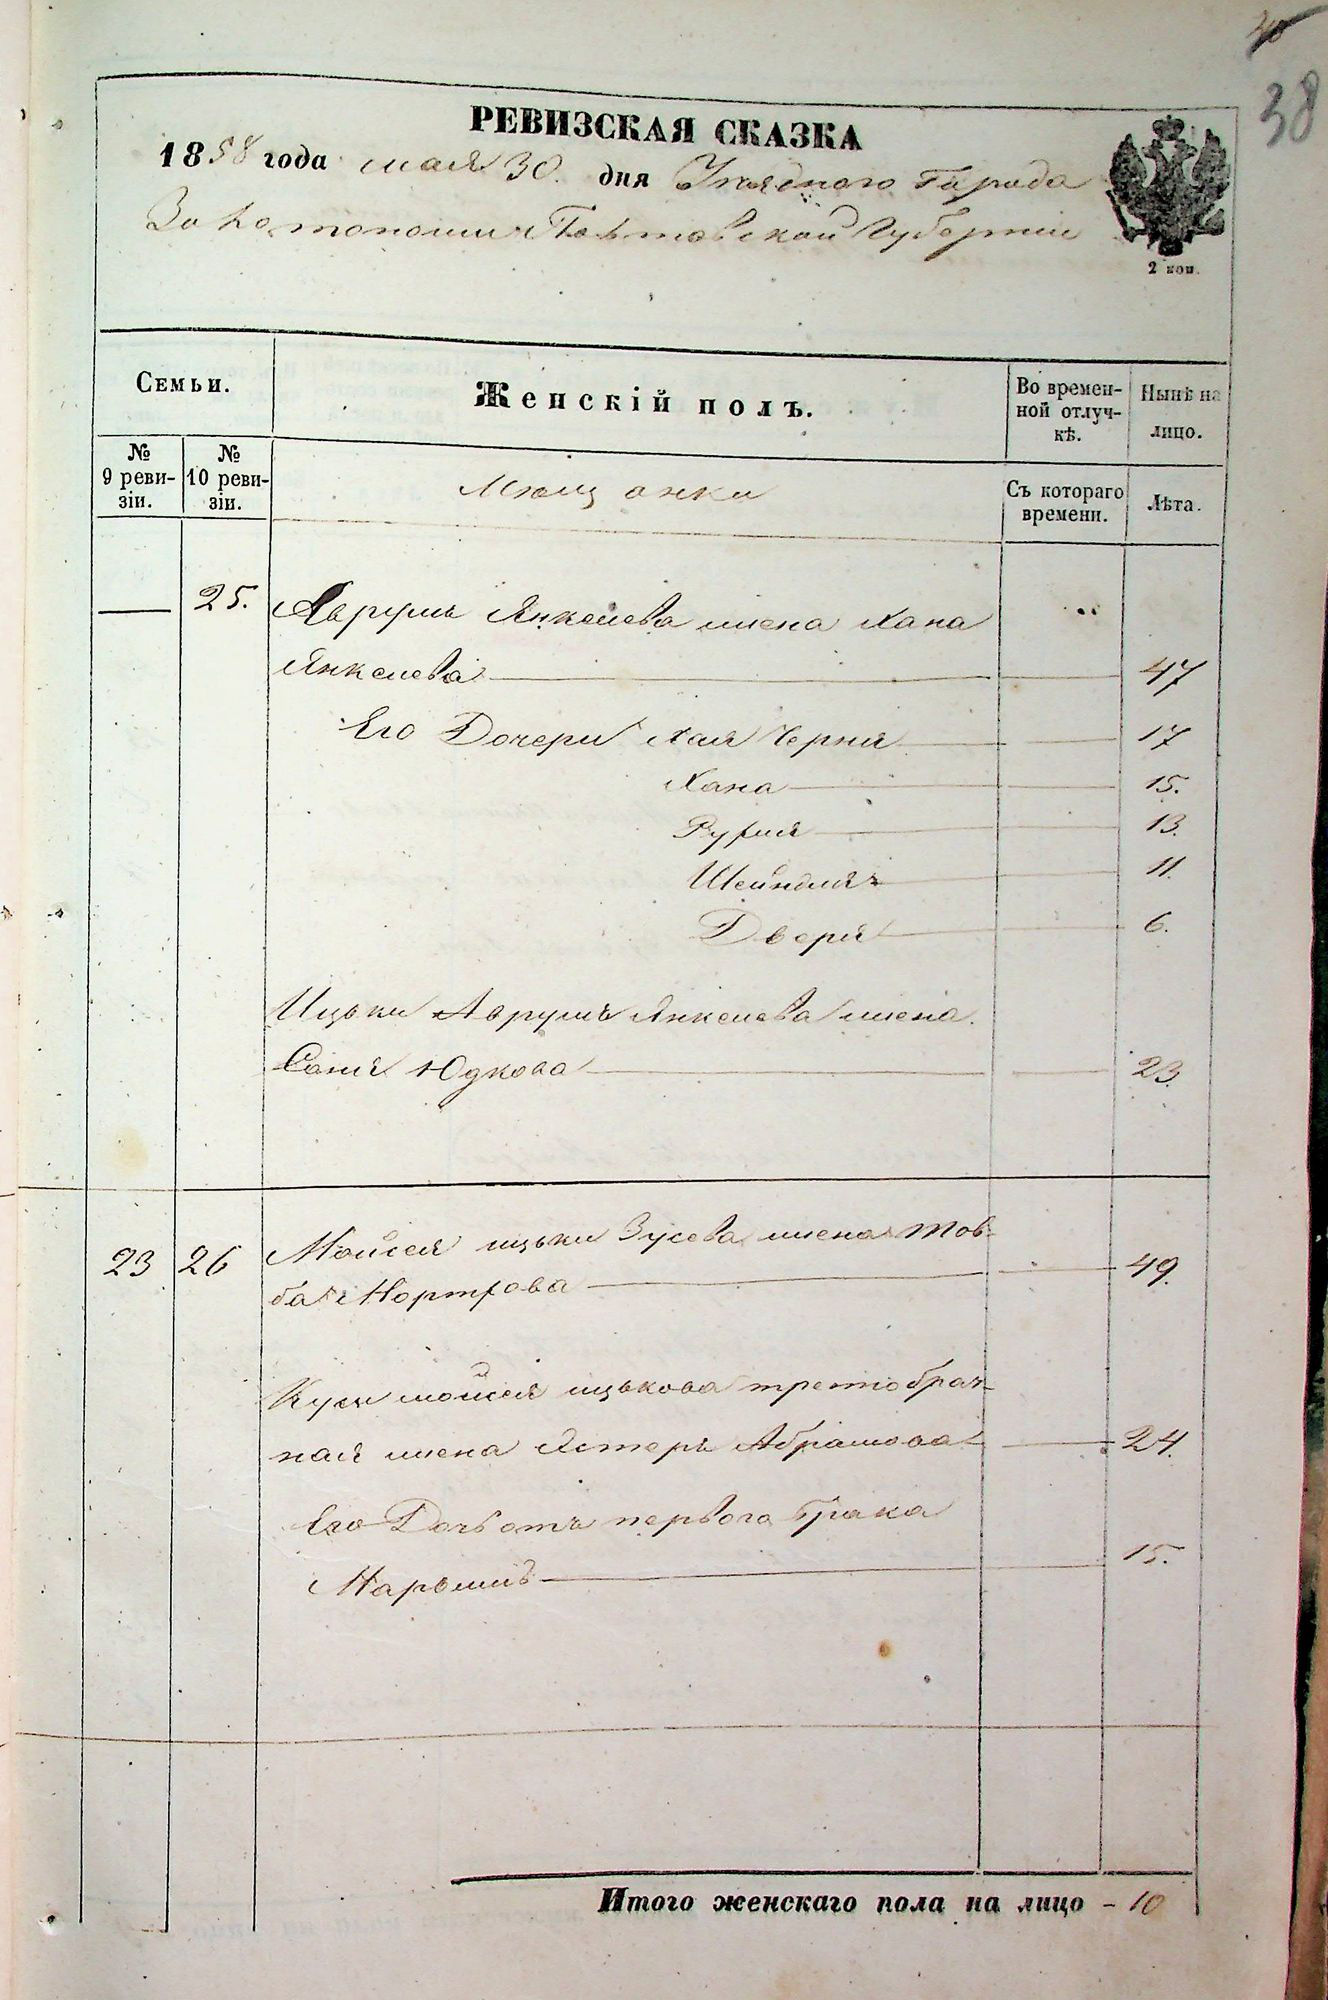 38
РЕВИЗСКАЯ СКАЗКА
1858 года мая 30. дня Уездного Города
Золотоноши Полтавской Губернии
2 коп.
Семьи.
Женскій полъ.
Во времен-
ной отлуч-
кѣ.
Нынѣ на
лицо.
№
9 реви-
зіи.
№
10 реви-
зіи.
Мещанки
Съ котораго
времени.
Лѣта.
25. Аврумъ Янкелева жена Хана
Янкелева 47
Его Дочери Хая Черня 17
Хана 15.
13.
Шейндля 11.
Двейря 6.
Ицьки Аврумъ Янкелева жена
Соня Юдкова 23.
23 26 Мойсея ицьки Зусева жена Тов-
ба 49.
Кусы мойсея ицькова третобрач-
ная жена Естеръ Абрамова 24.
Его Дочь отъ первого брака
Марьямъ 15.
Итого женскаго пола на лицо - 10